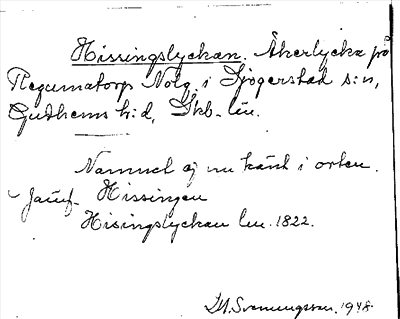 Hissingslyckan. Åkerlycka på
Regumatorp Nolg. i Sjogerstad s:n,
Gudhems h:d, Skb. län.
Namnet ej nu känt i orten.
Jämf. Hissingen
Hisingslyckan lm. 1822.
D.A. Svenningsson. 1948.